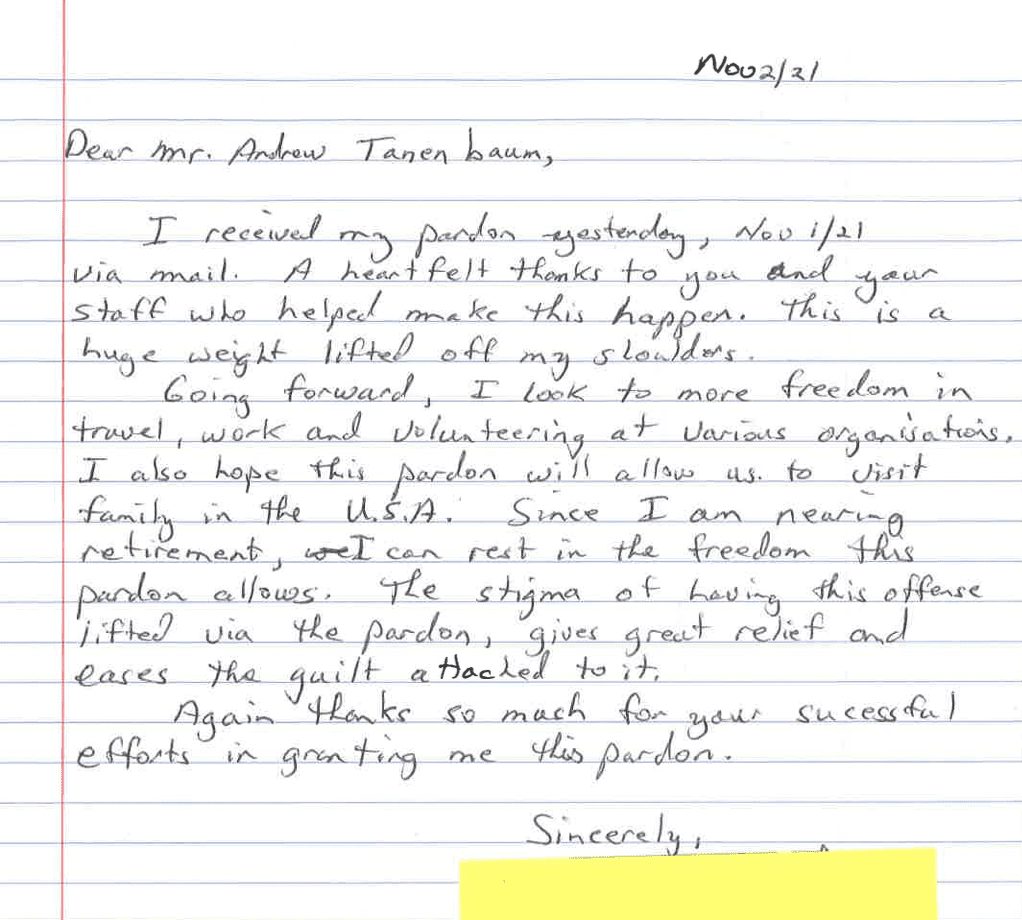 Nov 2/21
Dear Mr. Andrew Tanenbaum,
I received my pardon yesterday, Nov 1/21
via mail. A heartfelt thanks to you and your
staff who helped make this happen. This is a
huge weight lifted off my shoulders.
Going forward, I look to more freedom in
travel, work and volunteering at various organisations.
I also hope this pardon will allow us. to visit
family in the U.S.A. Since I am nearing
retirement, I can rest in the freedom this
pardon allows. The stigma of having this offense
lifted via the pardon, gives great relief and
eases the guilt attached to it.
Again thanks so much for your sucessful
efforts in granting me this pardon.
Sincerely,